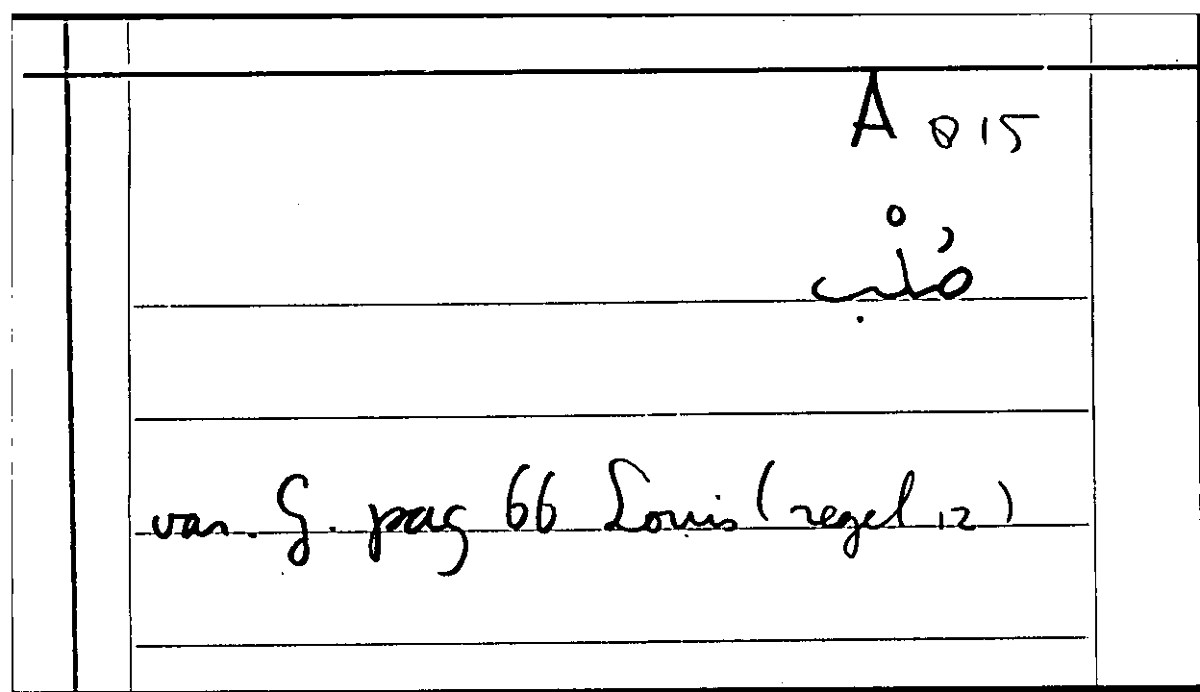 A 815
صُلْب
var. G. pag 66 Louis (regel 12)